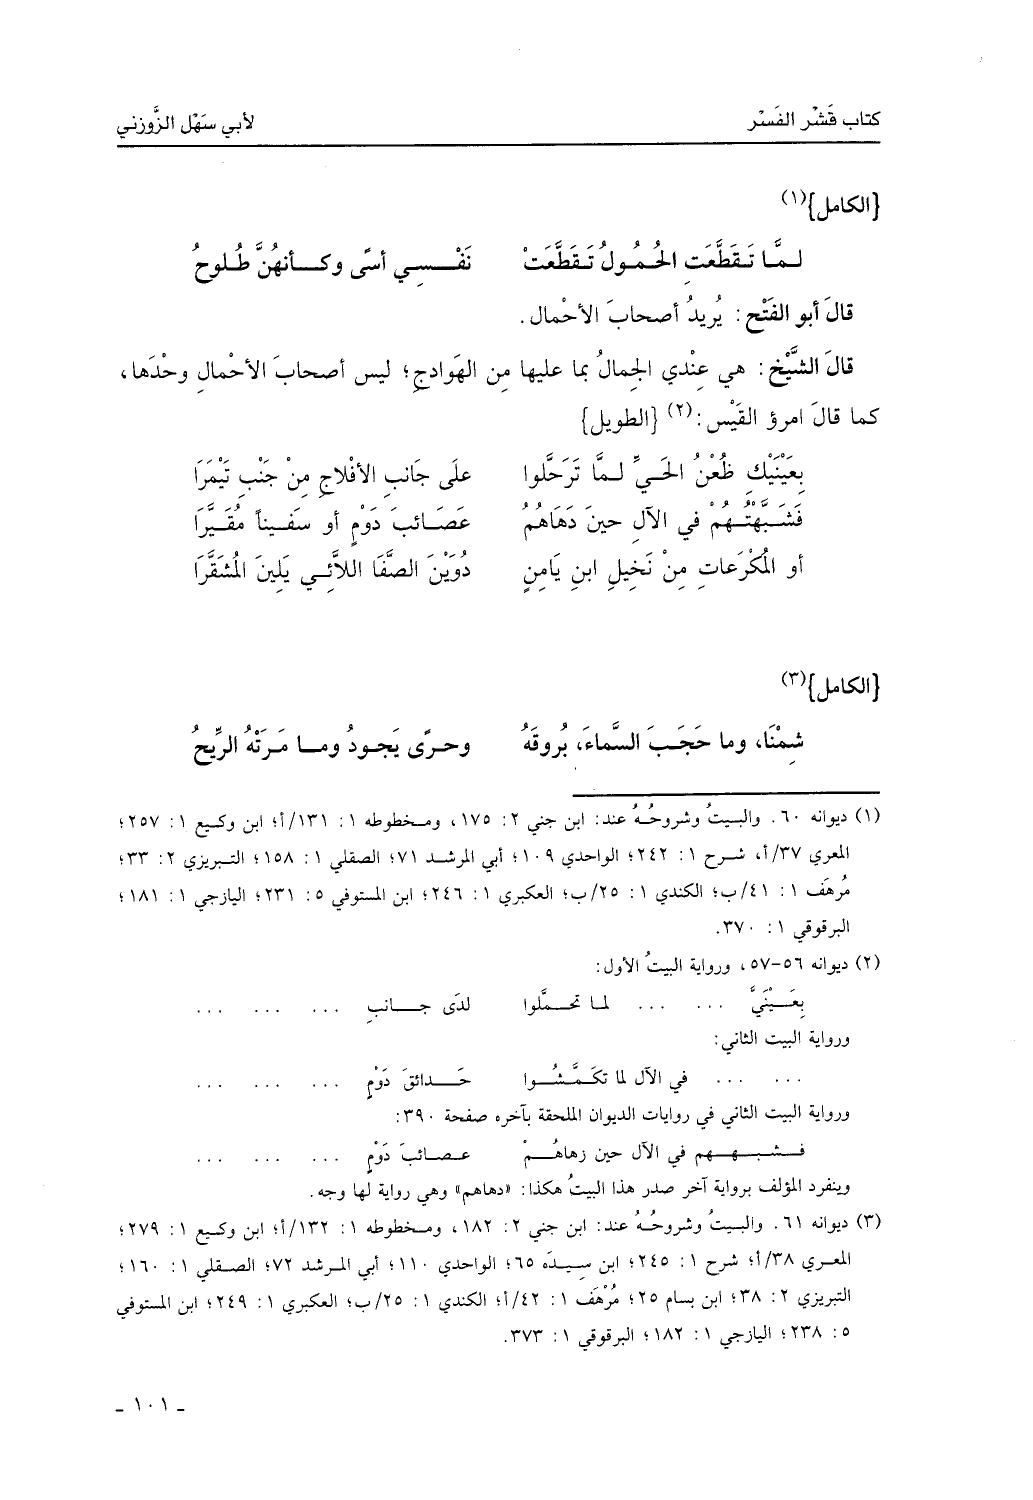 كتاب قَشْر الفَسْر لأبي سَهْل الزَّوزني
{الكامل}(١)
لـمَّا تَـقَطَّعَتِ الحُمُـولُ تَـقَطَّعَتْ نَفْـسِـي أسًى وكـأنهُنَّ طُلـوحُ
قالَ أبو الفَتْح: يُريدُ أصحابَ الأحْمال.
قالَ الشَّيْخ: هي عِنْدي الجِمالُ بما عليها مِن الهَوادجِ؛ ليس أصحابَ الأحْمالِ وحْدَها،
كما قالَ امرؤ القَيْس:(٢) {الطويل}
بِعَيْنَيْكِ ظُعْنُ الحَيِّ لـمَّا تَرَحَّلوا علَى جَانبِ الأفْلاجِ مِنْ جَنْبِ تَيْمَرَا
فَشَبَّهْتُهُمْ في الآلِ حينَ دَهَاهُمُ عَصَـائبَ دَوْمٍ أو سَفـيناً مُقَـيَّرَا
أو المُكْرَعاتِ مِنْ نَخيلِ ابنِ يَامنٍ دُوَيْنَ الصَّفَا اللاَّئـي يَلِينَ المُشَقَّرَا
{الكامل}(٣)
شِمْنَا، وما حَجَـبَ السَّماءَ، بُروقَهُ وحـرًى يَجـودُ ومـا مَـرَتْهُ الرِّيحُ
(١) ديوانه ٦٠. والبـيتُ وشروحُـهُ عند: ابن جني ٢: ١٧٥، ومـخطوطه ١: ١٣١/أ؛ ابن وكـيع ١: ٢٥٧؛
المعري ٣٧/أ، شـرح ١: ٢٤٢؛ الواحدي ١٠٩؛ أبي المرشـد ٧١؛ الصقلي ١: ١٥٨؛ التـبريزي ٢: ٣٣؛
مُرهَف ١: ٤١/ب؛ الكندي ١: ٢٥/ب؛ العكبري ١: ٢٤٦؛ ابن المستوفي ٥: ٢٣١؛ اليازجي ١: ١٨١؛
البرقوقي ١: ٣٧٠.
(٢) ديوانه ٥٦-٥٧، ورواية البيتُ الأول:
بِعَـيْنَيَّ ... ... لما تحمَّلوا لدَى جـانبِ ... ... ...
ورواية البيت الثاني:
... ... في الآل لما تكَـمَّـشُـوا حَـدائقَ دَوْمٍ ... ... ...
ورواية البيت الثاني في روايات الديوان الملحقة بآخره صفحة ٣٩٠:
فـشـبـهـهم في الآل حين زهاهُـمْ عـصـائبَ دَوْمٍ ... ... ...
وينفرد المؤلف برواية آخر صدر هذا البيتُ هكذا: «دهاهم» وهي رواية لها وجه.
(٣) ديوانه ٦١. والبـيتُ وشروحُـهُ عند: ابن جني ٢: ١٨٢، ومـخطوطه ١: ١٣٢/أ؛ ابن وكـيع ١: ٢٧٩؛
المعـري ٣٨/أ؛ شرح ١: ٢٤٥؛ ابن سِيـدَه ٦٥؛ الواحدي ١١٠؛ أبي المـرشد ٧٢؛ الصـقلي ١: ١٦٠؛
التبريزي ٢: ٣٨؛ ابن بسام ٢٥؛ مُرْهَف ١: ٤٢/أ؛ الكندي ١: ٢٥/ب؛ العكبري ١: ٢٤٩؛ ابن المستوفي
٥: ٢٣٨؛ اليازجي ١: ١٨٢؛ البرقوقي ١: ٣٧٣.
ـ ١٠١ ـ